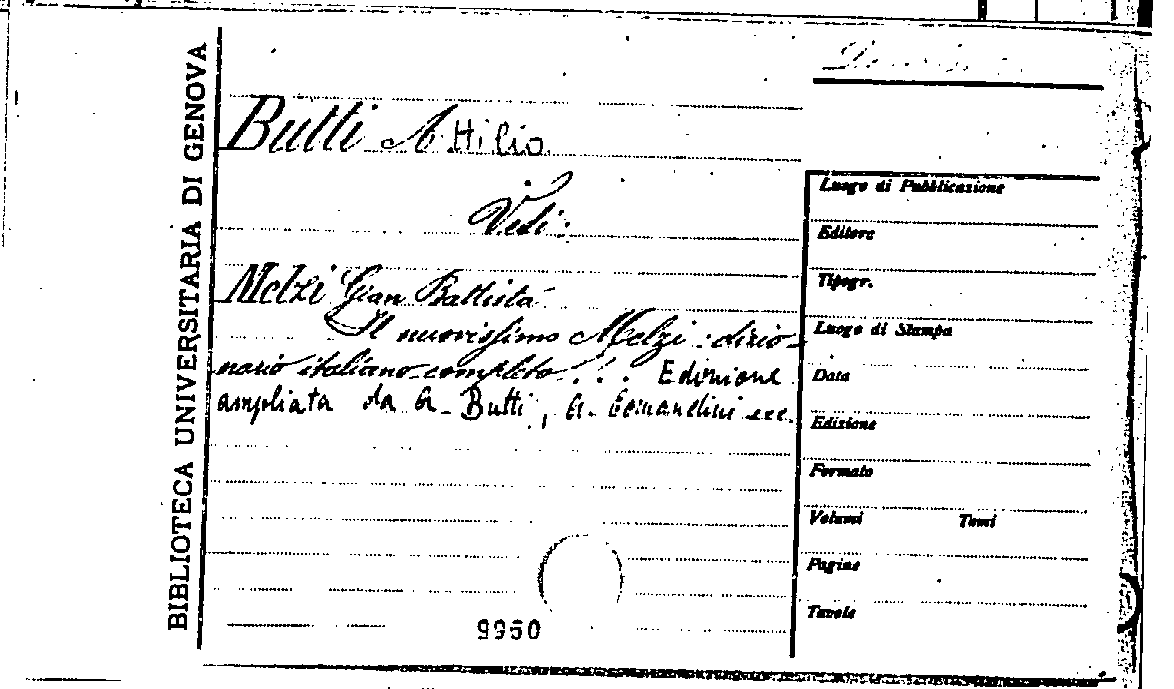 BIBLIOTECA UNIVERSITARIA DI GENOVA
Butti Attilio
Vedi:
Melzi Gian Battista
Il nuovissimo Melzi: dizio-
nario italiano completo... Edizione
ampliata da A. Butti, A. Comandini ecc.
9960
Luogo di Pubblicazione
Editore
Tipogr.
Luogo di Stampa
Data
Edizione
Formato
Volumi Tomi
Pagine
Tavole